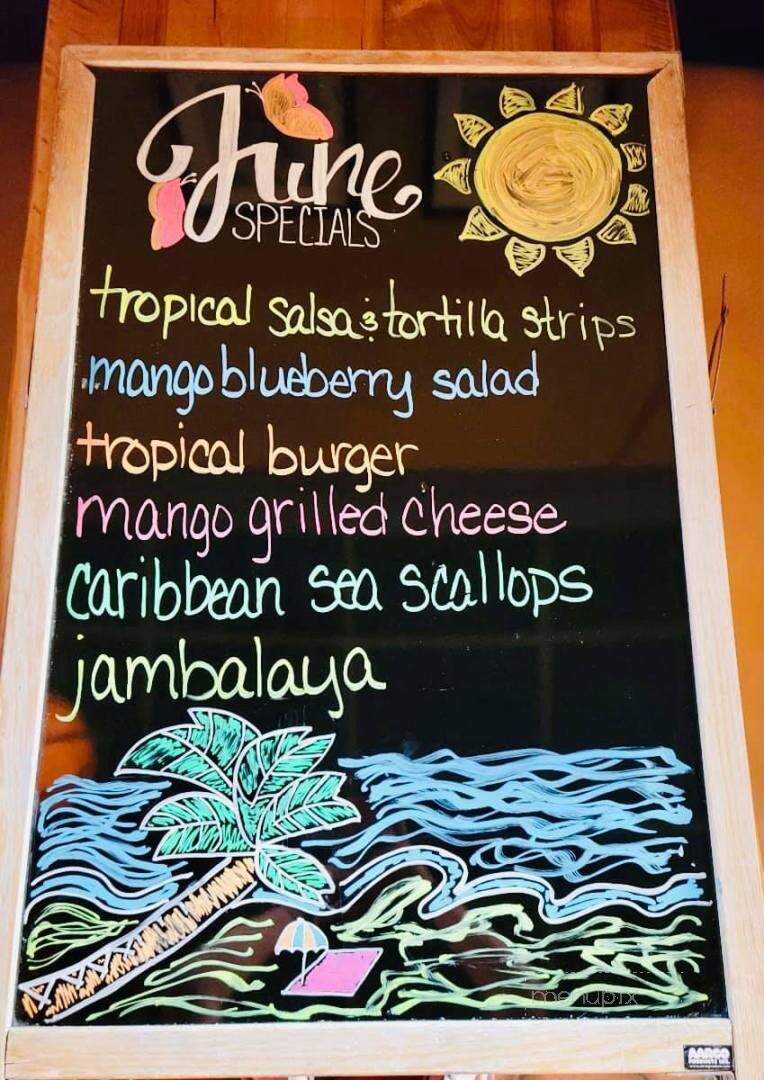 June
SPECIALS
tropical salsa & tortilla strips
mango blueberry salad
tropical burger
mango grilled cheese
caribbean sea scallops
jambalaya
menupix
AARCO